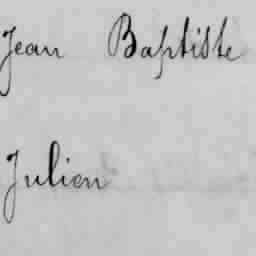 Jean Baptiste
Julien